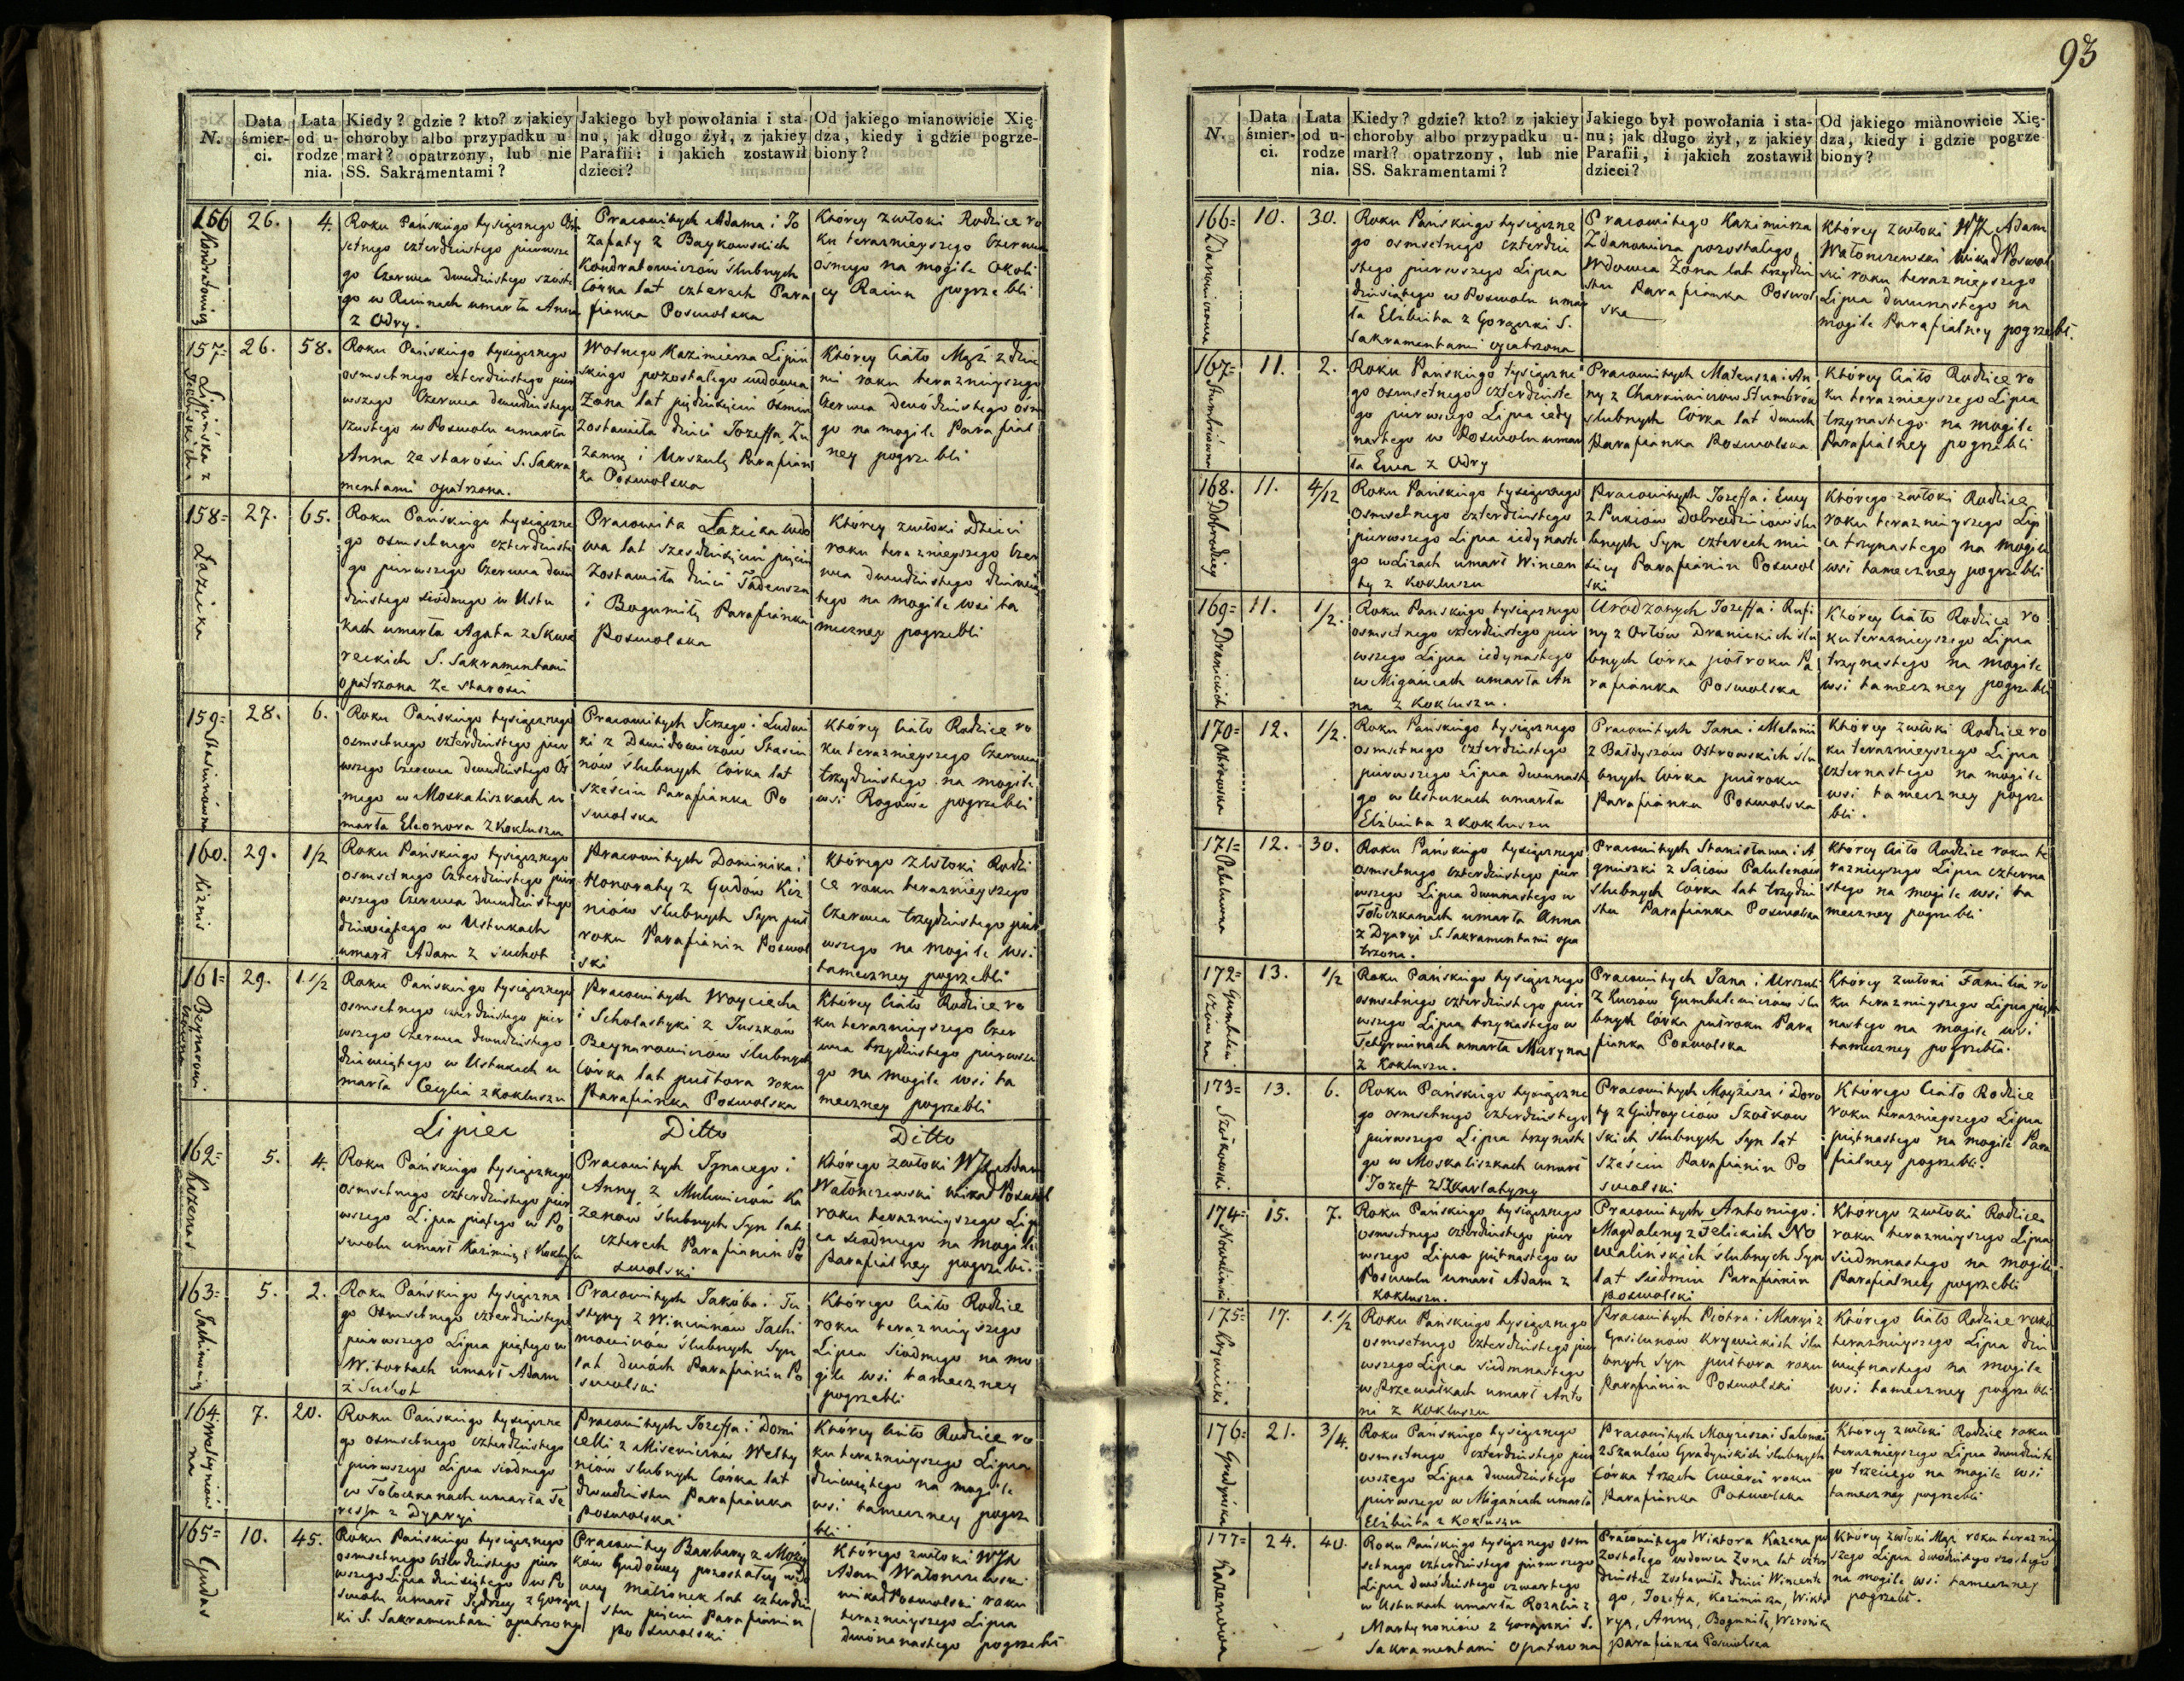 93
N.
Data śmierci.
Lata od urodzenia.
Kiedy? gdzie? kto? z jakiey choroby albo przypadku umarł? opatrzony, lub nie SS. Sakramentami?
Jakiego był powołania i stanu, jak długo żył, z jakiey Parafii: i jakich zostawił dzieci?
Od jakiego mianowicie Xiędza, kiedy i gdzie pogrzebiony?
156
26.
4.
Roku Pańskiego tysiącznego Oś
setnego czterdziestego pierwsze
go Czerwca dwudziestego szoste
go w Rainach umarła Anna
z Odry.
Pracowitych Adama i Jo
zefaty z Baykowskich
Kondratowiczów ślubnych
Córka lat czterech Para
fianka Poswolska
Którey zwłoki Rodzice ro
ku teraznieyszego Czerwca
ósmego na mogile Okoli
cy Rainn pogrzebli
157
Lipińska z
26.
58.
Roku Pańskiego tysiącznego
osmsetnego czterdziestego pier
wszego Czerwca dwudziestego
szustego w Poswolu umarła
Anna ze starości S. Sakra
mentami opatrzona.
Wolnego Kazimierza Lipiń
skiego pozostałego wdowca
Zona lat pięдziesięciu osmiu
zostawiła dzieci Jozeffa, Zu
zannę i Urszulę Parafian
ka Poswolska
Którey Ciało Mąż z dzie
mi roku teraznieyszego
Czerwca dwódziestego ósm
go na mogile Parafial
ney pogrzebli
158
Łazicka
27.
65.
Roku Pańskiego tysiączne
go osmsetnego czterdzieste
go pierwszego Czerwca dwu
dziestego siódmego w Ustu
kach umarła Agata z Skwe
reckich S. Sakramentami
opatrzona ze starości
Pracowita Łazicka wdo
wa lat szesdziesięciu pięciu
zostawiła dzieci Tadeusza
i Bogumiłę Parafianka
Poswolska
Którey zwłoki Dzieci
roku teraznieyszego Czer
wca dwudziestego dziewią
tego na mogile wsi ta
meczney pogrzebli
159
Stasiunówna
28.
6.
Roku Pańskiego tysiącznego
osmsetnego czterdziestego pier
wszego Czerwca dwudziestego Ós
mego w Moskaliszkach u
marła Eleonora z Kokluszu
Pracowitych Jerzego i Ludwi
ki z Dawidowiczów Stasiu
nów ślubnych Córka lat
sześciu Parafianka Po
swolska
Którey Ciało Rodzice ro
ku teraznieyszego Czerwca
trzydziestego na mogile
wsi Rogowa pogrzebli
160.
Kiznis
29.
1/2
Roku Pańskiego tysiącznego
osmsetnego Czterdziestego pier
wszego Czerwca dwudziestego
dziewiątego w Ustukach
umarł Adam z suchot
Pracowitych Dominika i
Honoraty z Gudów Kiz
niów slubnych Syn puł
roku Parafianin Poswol
ski
Którego zwłoki Rodzi
ce roku teraznieyszego
Czerwca trzydziestego pier
wszego na mogile wsi
tameczney pogrzebli
161
29.
1 1/2
Roku Pańskiego tysiącznego
osmsetnego czterdziestego pier
wszego Czerwca dwudziestego
dziewiątego w Ustukach u
marła Cecylia z Kokluszu
Pracowitych Woyciecha
i Scholastyki z Juszków
Beynarowiczów ślubnych
Córka lat pułtora roku
Parafianka Poswolska
Którey Ciało Rodzice ro
ku teraznieyszego Czer
wca trzydziestego pierwsze
go na mogile wsi ta
meczney pogrzebli
Lipiec
Ditto
Ditto
162
Kozenas
5.
4.
Roku Pańskiego tysiącznego
osmsetnego czterdziestego pier
wszego Lipca piątego w Po
swolu umarł Kazimierz z Kokluszu
Pracowitych Ignacego i
Anny z Mulewiczów Ka
zenów ślubnych Syn lat
czterech Parafianin Po
swolski
Którego zwłoki WJX Adam
Watonczewski wikad Poswol
roku teraznieyszego Lip
ca siódmego na mogile
Parafialney pogrzebł.
163
Jachimowicz
5.
2.
Roku Pańskiego tysiączne
go Osmsetnego czterdziestego
pierwszego Lipca piątego w
Witortach umarł Adam
z Suchot
Pracowitych Jakóba i Ju
styny z Winciunow Jachi
mowiczów ślubnych Syn
lat dwóch Parafianin Po
swolski
Którego Ciało Rodzice
roku teraznieyszego
Lipca siodmego na mo
gile wsi tameczney
pogrzebli
164
7.
20.
Roku Pańskiego tysiączne
go osmsetnego czterdziestego
pierwszego Lipca siodmego
w Tołoczkanach umarła Te
ressa z Dyaryi
Pracowitych Jozeffa i Domi
celli z Misewiczów Wełty
niów slubnych Córka lat
dwudziestu Parafianka
Poswolska
Którey Ciało Rodzice ro
ku teraznieyszego Lipca
dziewiętego na mogile
wsi tameczney pogrze
bli
165
Gudas
10.
45.
Roku Pańskiego tysiącznego
osmsetnego czterdziestego pier
wszego Lipca dziesiątego w Po
swolu umarł Jędrzey z Gorącz
ki S. Sakramentami opatrzony
Pracowitey Barbary z Moży
kow Gudowey pozostałey wdo
wy Małżonek lat czterdzie
stu pięciu Parafianin
Poswolski
Którego zwłoki WJX
Adam Watonczewski
wikad Poswolski roku
teraznieyszego Lipca
dwónanastego pogrzebł
N.
Data śmierci.
Lata od urodzenia.
Kiedy? gdzie? kto? z jakiey choroby albo przypadku umarł? opatrzony, lub nie SS. Sakramentami?
Jakiego był powołania i stanu; jak długo żył, z jakiey Parafii, i jakich zostawił dzieci?
Od jakiego miànowicie Xiędza, kiedy i gdzie pogrzebiony?
166
Zdanowiczowa
10.
30.
Roku Pańskiego tysiączne
go osmsetnego czterdzie
stego pierwszego Lipca
dziesiątego w Poswolu umar
ła Elżbieta z Gorączki S.
Sakramentami opatrzona
Pracowitego Kazimierza
Zdanowicza pozostałego
Wdowca Zona lat trzydzie
stu Parafianka Poswol
ska
Którey zwłoki WJX Adam
Watonczewski Wikad Poswol
ski roku teraznieyszego
Lipca dwunastego na
mogile Parafialney pogrzebł.
167
Stumbrówna
11.
2.
Roku Pańskiego tysiączne
go osmsetnego czterdzieste
go pierwszego Lipca iedy
nastego w Poswolu umar
ła Ewa z Odry
Pracowitych Mateusza i An
ny z Charkiewiczow Stumbrow
slubnych Corka lat dwuch
Parafianka Poswolska
Którey Ciało Rodzice ro
ku teraznieyszego Lipca
trzynastego na mogile
Parafialney pogrzebli
168.
Dobrodziey
11.
4/12
Roku Pańskiego tysiącznego
Osmsetnego czterdziestego
pierwszego Lipca iedynaste
go w Lizach umarł Wincen
ty z Kokluszu
Pracowitych Jozeffa i Ewy
z Pukiów Dobrodzieiów slu
bnych Syn czterech mie
sięcy Parafianin Poswol
ski
Którego zwłoki Rodzice
roku teraznieyszego Lip
ca trzynastego na mogile
wsi tameczney pogrzebli
169
11.
1/2.
Roku Panskiego tysiącznego
osmsetnego czterdziestego pier
wszego Lipca iedynastego
w Migańcach umarła An
na z Kokluszu.
Urodzonych Jozeffa i Rufi
ny z Orłów Dranickich slu
bnych Córka półroku Pa
rafianka Poswolska
Którey Ciało Rodzice ro
ku teraznieyszego Lipca
trzynastego na mogile
wsi tameczney pogrzebli
170
Ostrowska
12.
1/2.
Roku Pańskiego tysiącznego
osmsetnego czterdziestego
pierwszego Lipca dwunaste
go w Ustukach umarła
Elżbieta z Kokluszu
Pracowitych Jana i Melanii
z Bałdyszów Ostrowskich slu
bnych Córka pułroku
Parafianka Poswolska
Którey zwłoki Rodzice ro
ku teraznieyszego Lipca
czternastego na mogile
wsi tameczney pogrze
bli.
171
12.
30.
Roku Pańskiego tysiącznego
osmsetnego czterdziestego pier
wszego Lipca dwunastego w
Tołoczkanach umarła Anna
z Dyaryi S. Sakramentami opa
trzona.
Pracowitych Stanisława i A
gnieszki z Szciów Palulenów
slubnych Corka lat trzydzie
stu Parafianka Poswolska
Którey Ciało Rodzice roku te
raznieyszego Lipca czterna
stego na mogile wsi ta
meczney pogrzebli
172
13.
1/2
Roku Pańskiego tysiącznego
osmsetnego czterdziestego pier
wszego Lipca trzynastego w
Tetyrwinach umarła Maryna
z Kokluszu.
Pracowitych Jana i Urszuli
z Kuczów Gumbelewiczów slu
bnych Córka pułroku Para
fianka Poswolska
Którey zwłoki Familia ro
ku teraznieyszego Lipca pięt
nastego na mogile wsi
tameczney pogrzebła.
173
13.
6.
Roku Pańskiego tysiączne
go osmsetnego czterdziestego
pierwszego Lipca trzynaste
go w Moskaliszkach umarł
Jozeff z Szkarlatyny
Pracowitych Moyżesza i Doro
ty z Giedroyciów Szołkow
skich ślubnych Syn lat
sześciu Parafianin Po
swolski
Którego Ciało Rodzice
roku teraznieyszego Lipca
piętnastego na mogile Para
fialney pogrzebli.
174
15.
7.
Roku Pańskiego tysiącznego
osmsetnego czterdziestego pier
wszego Lipca piętnastego w
Poswolu umarł Adam z
Kokluszu.
Pracowitych Antoniego i
Magdaleny z Felickich No
walinskich ślubnych Syn
lat siedmiu Parafianin
Poswolski
Którego zwłoki Rodzice
roku teraznieyszego Lipca
siedmnastego na mogile
Parafialney pogrzebli
175
17.
1 1/2
Roku Pańskiego tysiącznego
osmsetnego czterdziestego pier
wszego Lipca siedmnastego
w Przewałkach umarł Anto
ni z Kokluszu
Pracowitych Piotra i Maryi z
Gasiunow Krywickich slu
bnych Syn pułtora roku
Parafianin Poswolski
Którego Ciało Rodzice roku
teraznieyszego Lipca dzie
więtnastego na mogile
wsi tameczney pogrzebli
176
Gradyńska
21.
3/4.
Roku Pańskiego tysiącznego
osmsetnego czterdziestego pier
wszego Lipca dwudziestego
pierwszego w Migańcach umarła
Elżbieta z Kokluszu
Pracowitych Moyżesza i Salomei
z Szantów Gradyńskich slubnych
Córka trzech Cwierci roku
Parafianka Poswolska
Którey zwłoki Rodzice roku
teraznieyszego Lipca dwudzieste
go trzeciego na mogile wsi
tameczney pogrzebli
177
Kozenowa
24.
40.
Roku Pańskiego tysiącznego osm
setnego czterdziestego pierwszego
Lipca dwódziestego czwartego
w Ustukach umarła Rozalia z
Martynoniów z Gorączki S.
Sakramentami Opatrzona
Pracowitego Wiktora Kazena po
zostałego wdowca Zona lat czter
dziestu zostawiła dzieci Wincente
go, Jozeffa, Kazimierza, Wikto
ryą, Annę, Bogumiłę, Weronikę
Parafianka Poswolska
Którey zwłoki Mąż roku teraznie
szego Lipca dwódziestego szostego
na mogile wsi tameczney
pogrzebł.